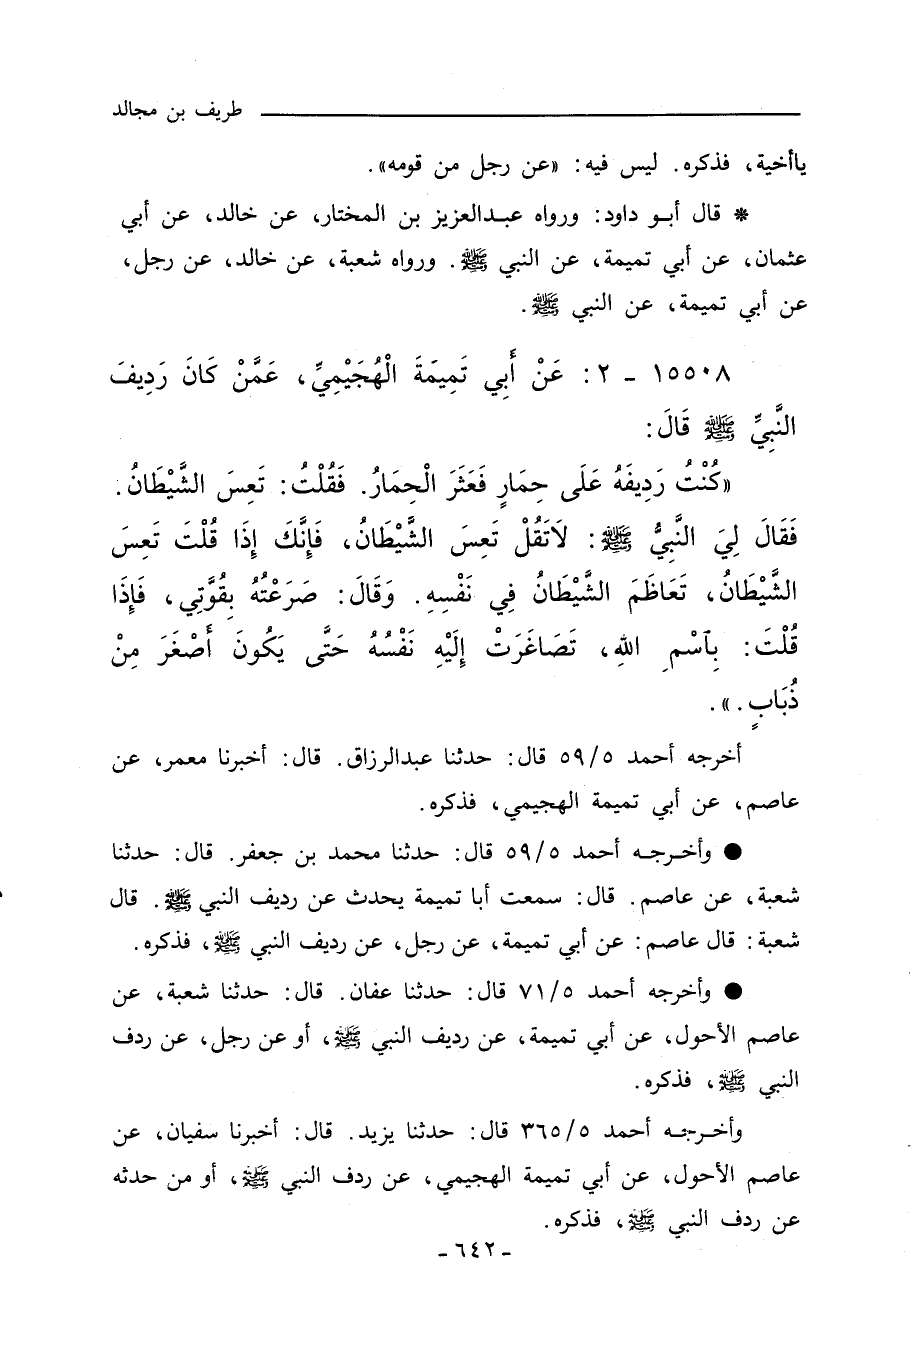 طريف بن مجالد
ياأخية، فذكره. ليس فيه: «عن رجل من قومه».
* قال أبو داود: ورواه عبدالعزيز بن المختار، عن خالد، عن أبي
عثمان، عن أبي تميمة، عن النبي ﷺ. ورواه شعبة، عن خالد، عن رجل،
عن أبي تميمة، عن النبي ﷺ.
١٥٥٠٨ - ٢: عَنْ أَبِي تَمِيمَةَ الْهُجَيْمِيِّ، عَمَّنْ كَانَ رَدِيفَ
النَّبِيِّ ﷺ قَالَ:
«كُنْتُ رَدِيفَهُ عَلَى حِمَارٍ فَعَثَرَ الْحِمَارُ. فَقُلْتُ: تَعِسَ الشَّيْطَانُ.
فَقَالَ لِيَ النَّبِيُّ ﷺ: لاَتَقُلْ تَعِسَ الشَّيْطَانُ، فَإِنَّكَ إِذَا قُلْتَ تَعِسَ
الشَّيْطَانُ، تَعَاظَمَ الشَّيْطَانُ فِي نَفْسِهِ. وَقَالَ: صَرَعْتُهُ بِقُوَّتِي، فَإِذَا
قُلْتَ: بِآسْمِ اللهِ، تَصَاغَرَتْ إِلَيْهِ نَفْسُهُ حَتَّى يَكُونَ أَصْغَرَ مِنْ
ذُبَابٍ.».
أخرجه أحمد ٥٩/٥ قال: حدثنا عبدالرزاق. قال: أخبرنا معمر، عن
عاصم، عن أبي تميمة الهجيمي، فذكره.
● وأخرجه أحمد ٥٩/٥ قال: حدثنا محمد بن جعفر. قال: حدثنا
شعبة، عن عاصم. قال: سمعت أبا تميمة يحدث عن رديف النبي ﷺ. قال
شعبة: قال عاصم: عن أبي تميمة، عن رجل، عن رديف النبي ﷺ، فذكره.
● وأخرجه أحمد ٧١/٥ قال: حدثنا عفان. قال: حدثنا شعبة، عن
عاصم الأحول، عن أبي تميمة، عن رديف النبي ﷺ، أو عن رجل، عن ردف
النبي ﷺ، فذكره.
وأخرجه أحمد ٣٦٥/٥ قال: حدثنا يزيد. قال: أخبرنا سفيان، عن
عاصم الأحول، عن أبي تميمة الهجيمي، عن ردف النبي ﷺ، أو من حدثه
عن ردف النبي ﷺ، فذكره.
- ٦٤٢ -